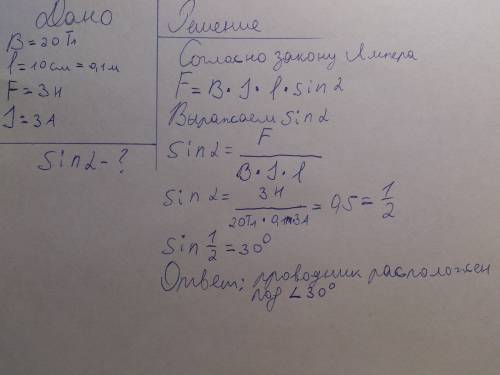 Дано
B = 20 Тл
l = 10 см = 0,1 м
F = 3 Н
I = 3 А
Sin α - ?
Решение
Согласно закону Ампера
F = B · I · l · sin α
Выражаем sin α
sin α = F / B · I · l
sin α = 3 Н / 20 Тл · 0,1м · 3А = 0,5 = 1/2
sin 1/2 = 30°
Ответ: проводник расположен
под ∠30°